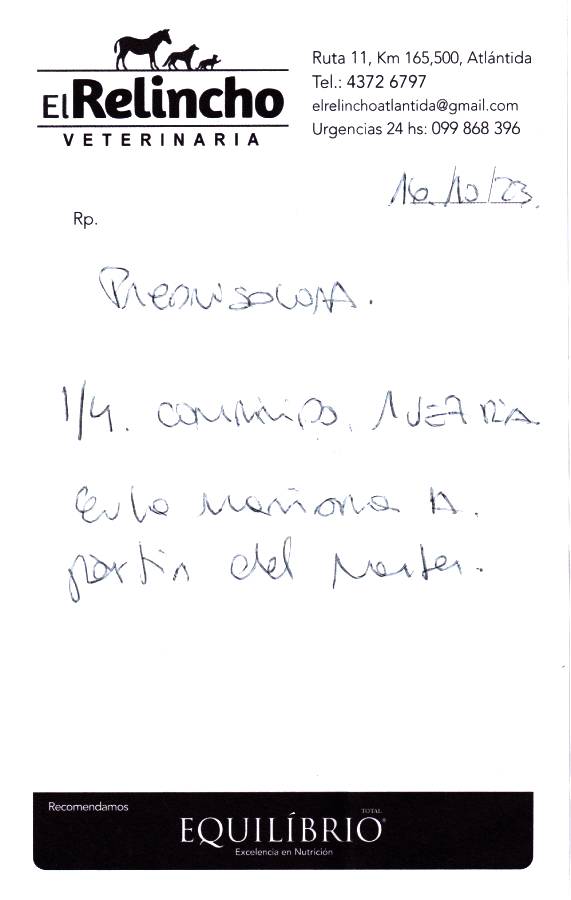 El Relincho
VETERINARIA
Ruta 11, Km 165,500, Atlántida
Tel.: 4372 6797
elrelinchoatlantida@gmail.com
Urgencias 24 hs: 099 868 396
16/10/23.
Rp.
Prednisolona.
1/4. comprimido. 1 vez x día
en la mañana A.
partir del martes.
Recomendamos
EQUILÍBRIO TOTAL®
Excelencia en Nutrición